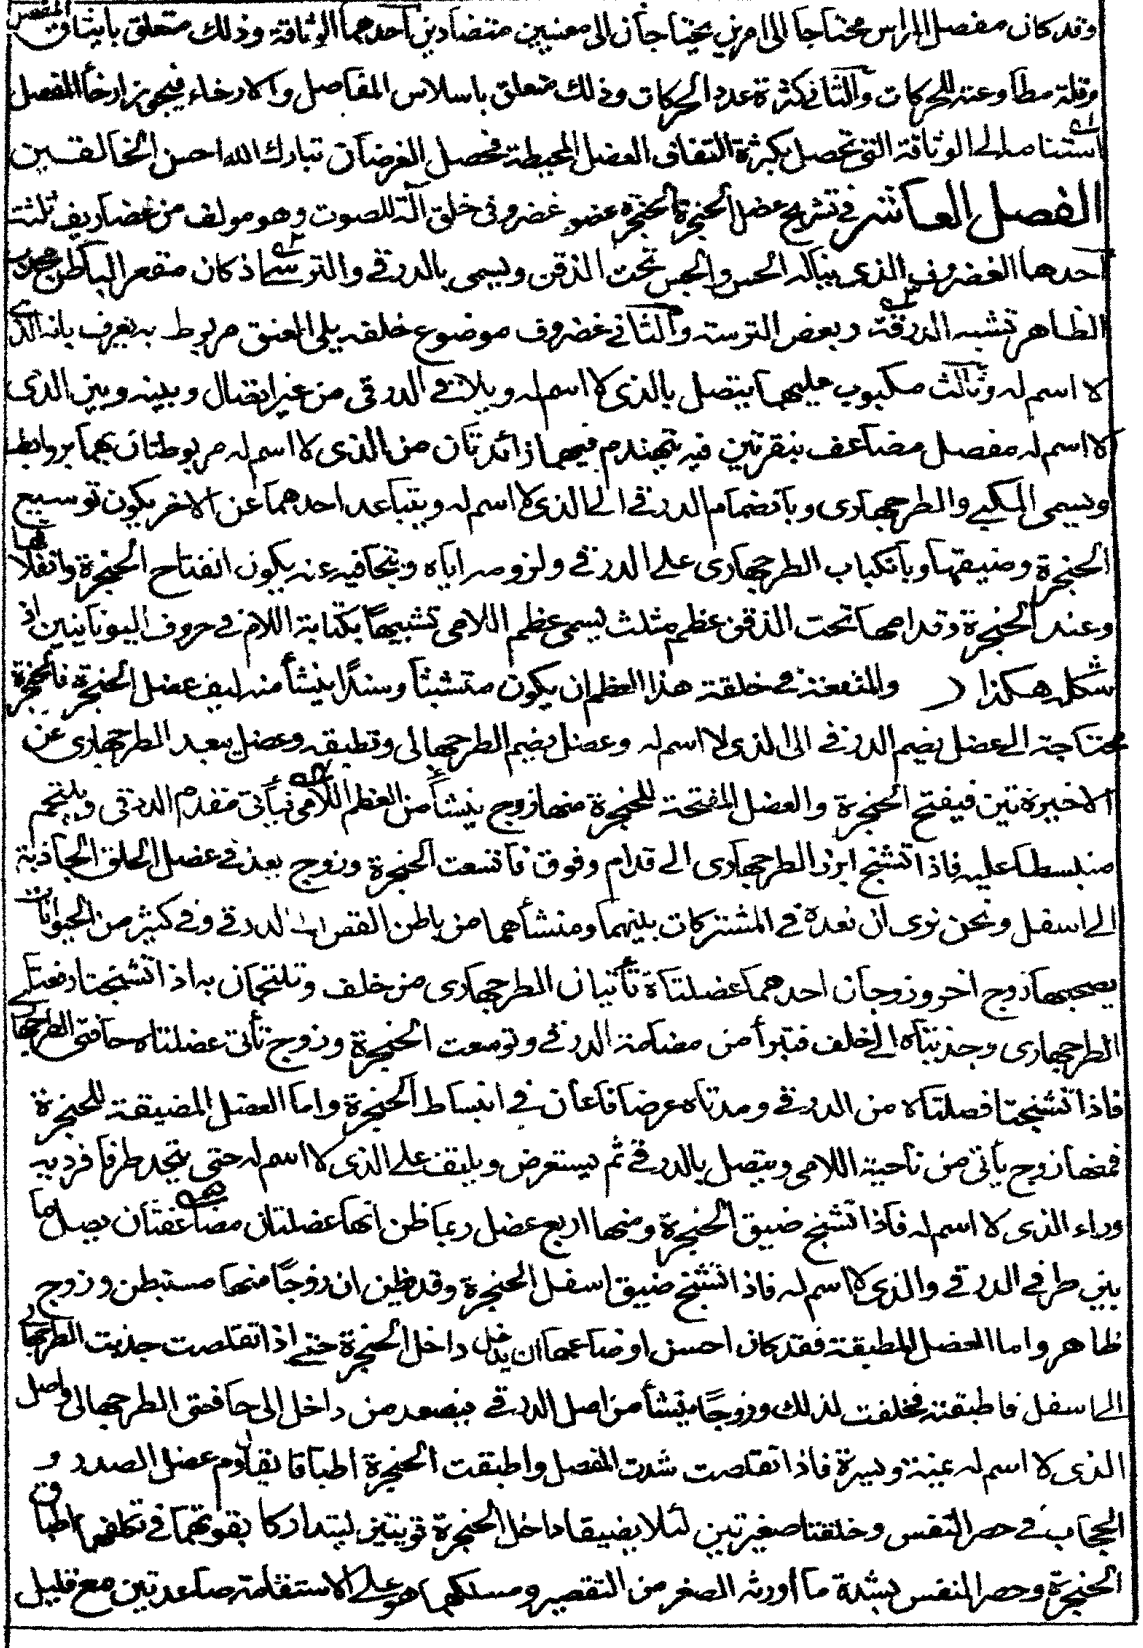 وقد كان مفصل الراس محتاجا الى امرين يحتاجان الى معنيين متضادين احدهما الوثاقة وذلك متعلق بايثاق المفصل
وقلة مطاوعته للحركات والثانى كثرة عدد الحركات وذلك متعلق باسلاس المفاصل والارخاء فيجوز ارخاء المفصل
استنامة الى الوثاقة التى تحصل بكثرة التفاف العضل المحيطة فحصل الغرضان تبارك الله احسن الخالقين
الفصل العاشر فى تشريح عضل الحنجرة الحنجرة عضو غضروفى خلق آلة للصوت وهو مولف من غضاريف ثلثة
احدها الغضروف الذى يناله الحس والجس تحت الذقن ويسمى بالدرقى والترسى اذ كان مقعر الباطن محدب
الظاهر تشبه الدرقة وبعض الترسة والثانى غضروف موضوع خلفه يلى العنق مربوط به يعرف بانه الذى
لا اسم له وثالث مكبوب عليهما يتصل بالذى لا اسم له ويلاقى الدرقى من غير اتصال وبينه وبين الذى
لا اسم له مفصل مضاعف بنقرتين فيه يتهندم فيهما زائدتان من الذى لا اسم له مربوطتان بهما بروابط
ويسمى المكبى والطرجهارى وبانضمام الدرقى الى الذى لا اسم له ويتباعد احدهما عن الاخر يكون توسيع
الحنجرة وضيقها وبانكباب الطرجهارى على الدرقى ولزومه اياه وبتجافيه عنه يكون انفتاح الحنجرة وانغلاقها
وعند الحنجرة وقدامها تحت الذقن عظم مثلث يسمى عظم اللامى تشبيها بكتابة اللام فى حروف اليونانيين اذ
شكله هكذا والمنفعة فى خلقة هذا العظم ان يكون متشبثا وسندا ينشأ منه ليف عضل الحنجرة فالحنجرة
محتاجة الى عضل يضم الدرقى الى الذى لا اسم له وعضل يضم الطرجهالى وتطبقه وعضل يبعد الطرجهارى عن
الاخيرتين فيفتح الحنجرة والعضل المفتحة للحنجرة منها زوج ينشأ من العظم اللامى فيأتى مقدم الدرقى ويلتحم
منبسطا عليه فاذا تشنج ابرز الطرجهارى الى قدام وفوق فاتسعت الحنجرة وزوج يعد فى عضل الحلق الجاذبة
الى اسفل ونحن نرى ان نعده فى المشتركات بينهما ومنشأهما من باطن القص الى الدرقى وفى كثير من الحيوانات
يصحبها زوج اخر وزوجان احدهما عضلتاه تأتيان الطرجهارى من خلف وتلتحمان به اذا تشنجتا رفعتا
الطرجهارى وجذبتاه الى خلف فتبرأ من مضامة الدرقى وتوسعت الحنجرة وزوج تأتى عضلتاه حافتى الطرجهارى
فاذا تشنجتا فصلتاه من الدرقى ومدتاه عرضا فاعان فى انبساط الحنجرة واما العضل المضيقة للحنجرة
فمنها زوج يأتى من ناحية اللامى ويتصل بالدرقى ثم يستعرض ويلتف على الذى لا اسم له حتى يتحد طرفا فرديه
وراء الذى لا اسم له فاذا تشنج ضيق الحنجرة ومنها اربع عضل ربما ظن انها عضلتان مضاعفتان يصل ما
بين طرفى الدرقى والذى لا اسم له فاذا تشنج ضيق اسفل الحنجرة وقد يظن ان زوجا منها مستبطن وزوج
ظاهر واما العضل المطبقة فقد كان احسن اوضاعها ان يدخل داخل الحنجرة حتى اذا تقلصت جذبت الطرجهارى
الى اسفل فاطبقته فخلقت لذلك وزوجا ينشأ من اصل الدرقى فيصعد من داخل الى حافتى الطرجهالى واصل
الذى لا اسم له يمينة ويسرة فاذا تقلصت شدت المفصل واطبقت الحنجرة اطباقا يقاوم عضل الصدر و
الحجاب فى حصر النفس وخلقتا صغيرتين لئلا يضيقا داخل الحنجرة قويتين ليتداركا بقوتهما فى تكلفهما اطباق
الحنجرة وحصر النفس بشدة ما اورثه الصغر من التقصير ومسلكهما هو على الاستقامة صاعدتين مع قليل